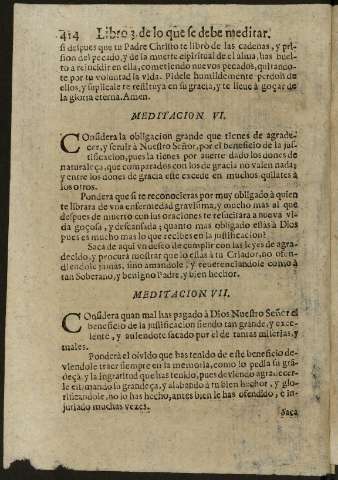 414 Libro 3. de lo que se debe meditar.
si despues que tu Padre Christo te librò de las cadenas, y pri-
sion del pecado, y de la muerte espiritual de el alma, has buel-
to a reincidir en ella, cometiendo nuevos pecados, quitando-
te por tu voluntad la vida. Pidele humildemente perdon de
ellos, y suplicale te restituya en su gracia, y te lleve à goçar de
la gloria eterna. Amen.
MEDITACION VI.
COnsidera la obligacion grande que tienes de agrade-
cer, y servir à Nuestro Señor, por el beneficio de la jus-
tificacion, pues la tienes por averte dado los dones de
naturaleça, que comparados con los de gracia no valen nada;
y entre los dones de gracia este excede en muchos quilates à
los otros.
Pondera que si te reconocieras por muy obligado à quien
te librara de vna enfermedad gravissima, y mucho mas al que
despues de muerto con sus oraciones te resucitara a nueva vi-
da goçosa, y descansada; quanto mas obligado estàs à Dios
pues es mucho mas lo que recibes en la justificacion?
Saca de aqui vn deseo de cumplir con las leyes de agra-
decido, y procura mostrar que lo estàs à tu Criador, no ofen-
diendole jamas, sino amandole, y reverenciandole como à
tan Soberano, y benigno Padre, y bien hechor.
MEDITACION VII.
COnsidera quan mal has pagado à Dios Nuestro Señor el
beneficio de la justificacion siendo tan grande, y exce-
lente, y aviendote sacado por el de tantas miserias, y
males.
Ponderà el olvido que has tenido de este beneficio de-
viendole traer siempre en la memoria, como lo pedia su grã-
deça, y la ingratitud que has tenido, pues deviendo agradecer-
le estimando la grandeça, y alabando à tu bien hechor, y glo-
rificandole, no lo has hecho, antes bien le has ofendido, è in-
juriado muchas vezes.
Saca